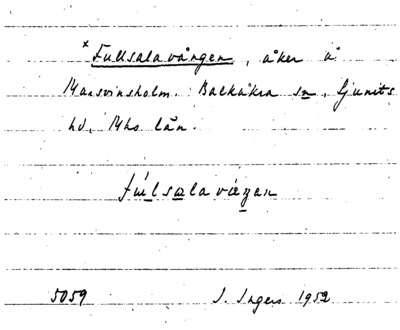 × Fullsalavången, åker å
Marsvinsholm. Balkåkra sn, Ljunits
hd, Mhs län.
fúlsalavàŋan
5059 I. Ingers 1952